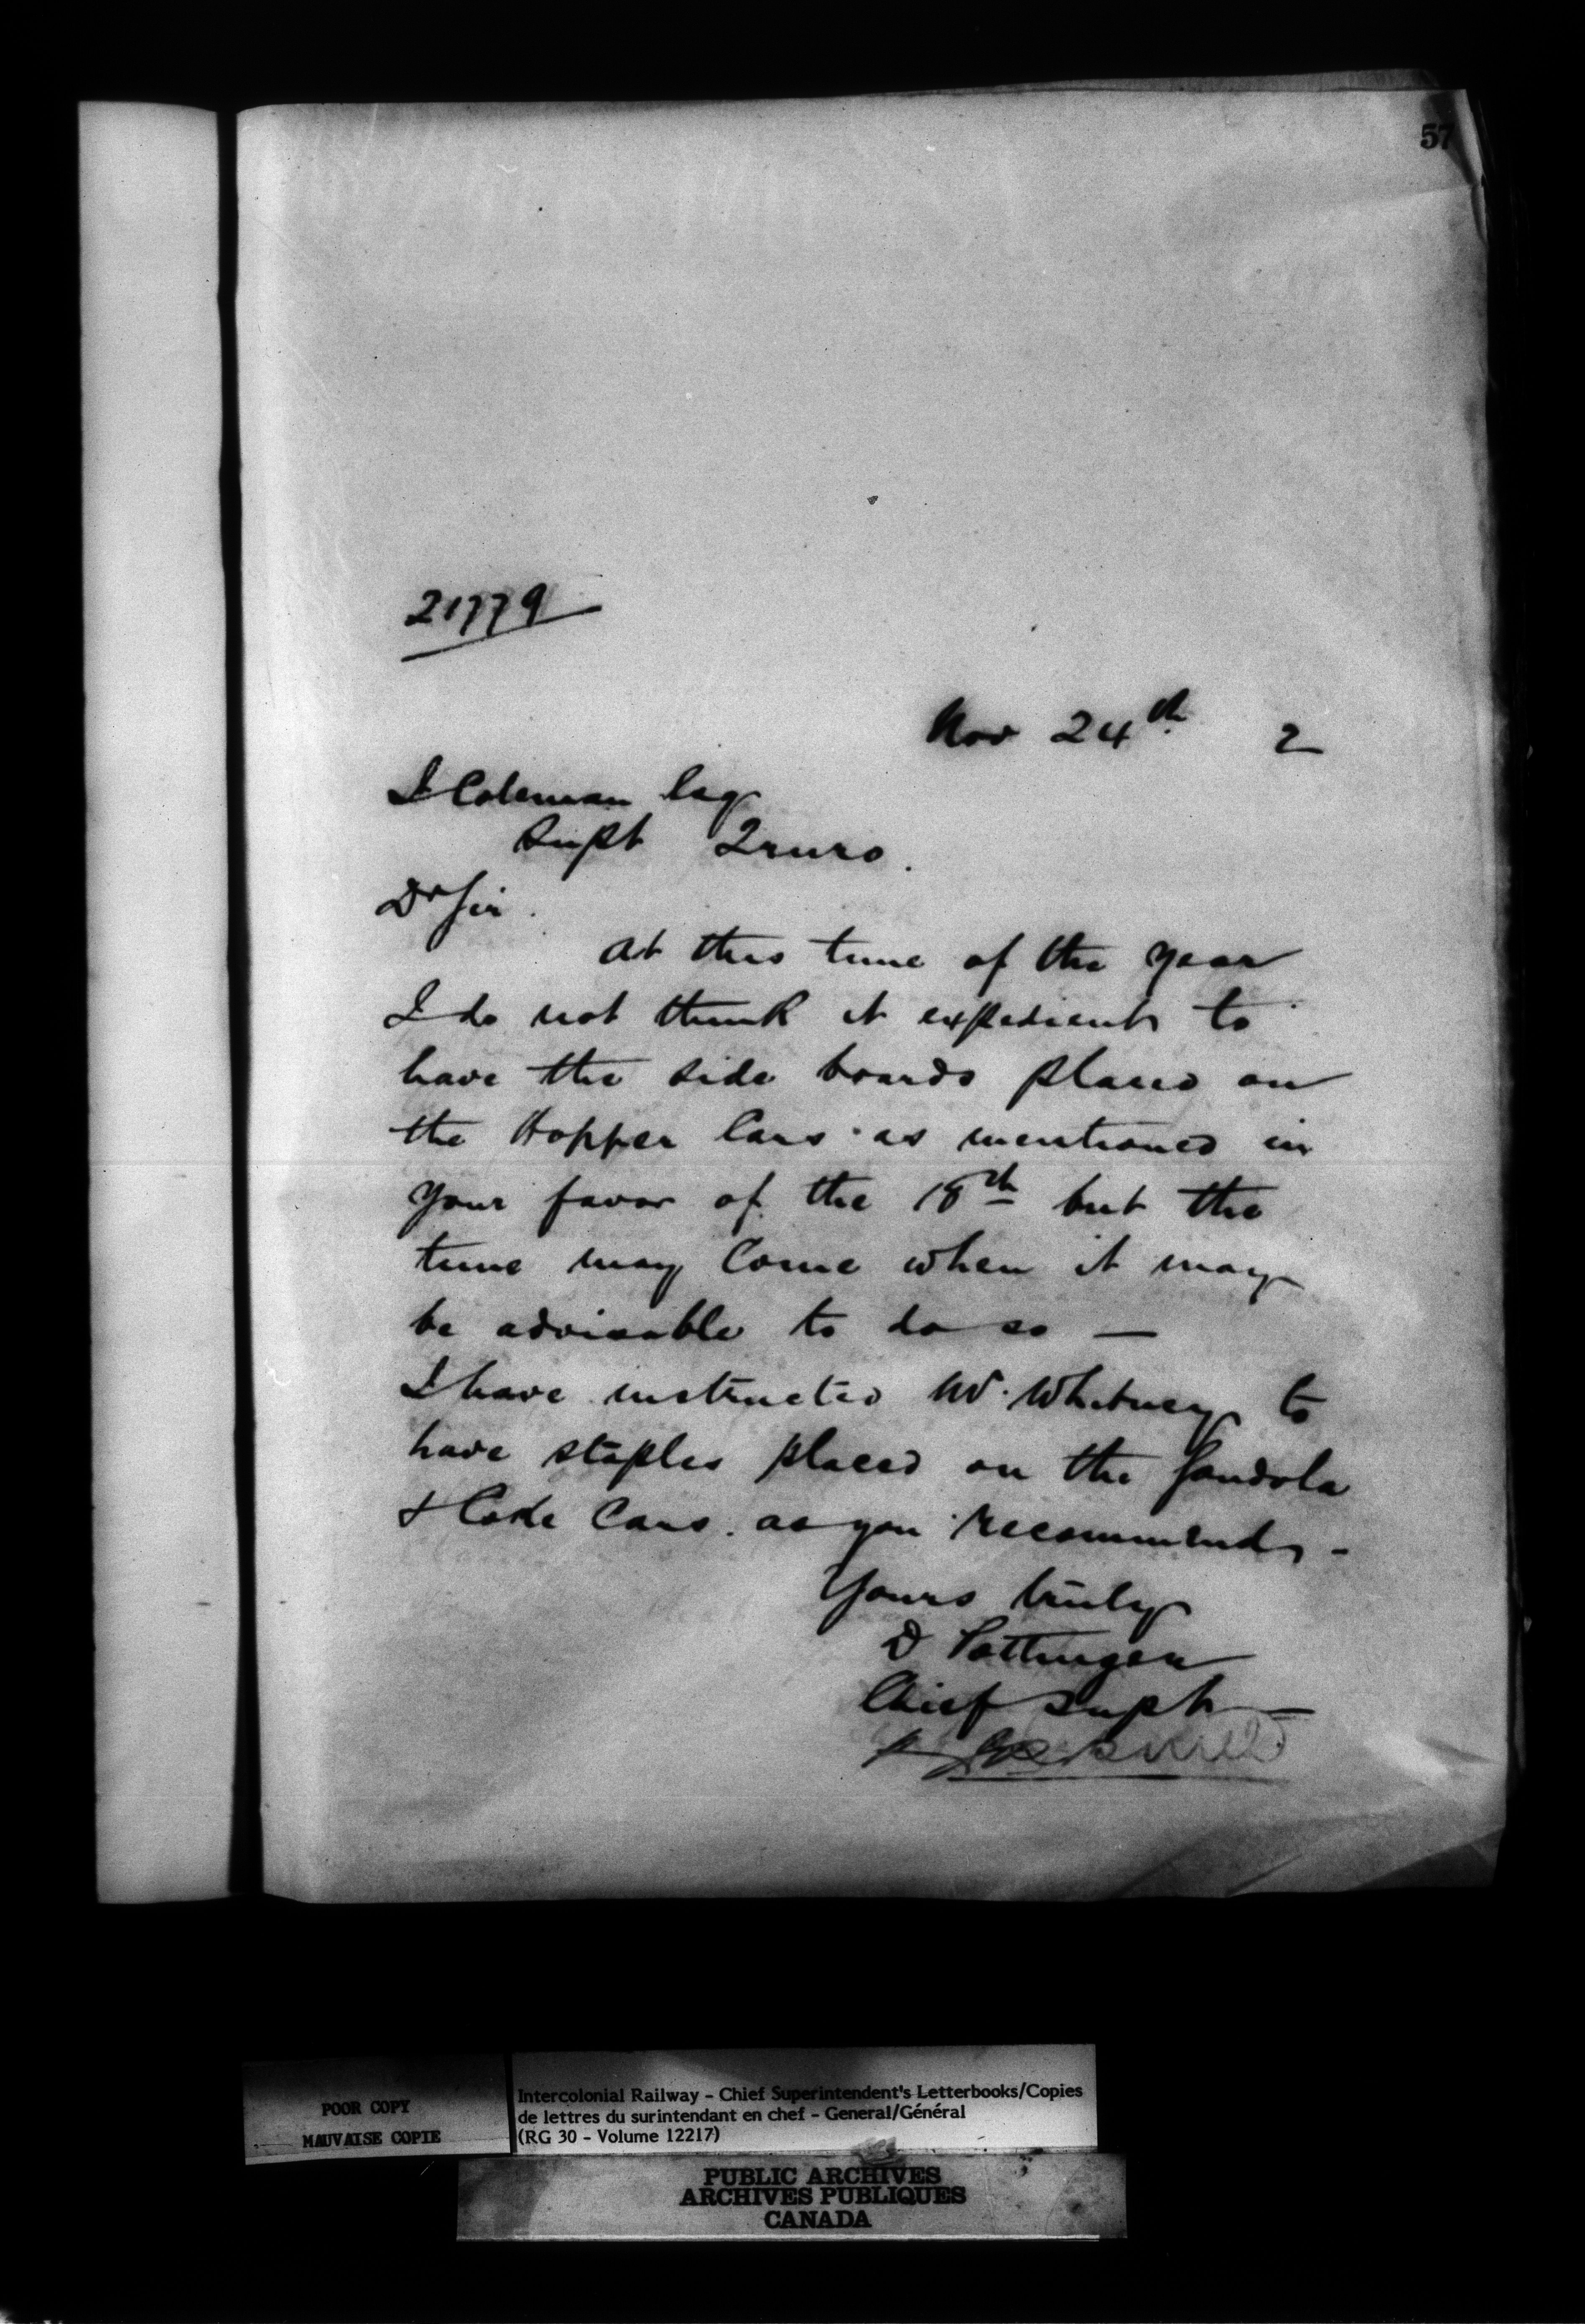 57
21779
Nov 24th 2
I Coleman Esq
Supt Truro.
Dr Sir.
At this time of the year
I do not think it expedient to
have the side boards placed on
the Hopper Cars as mentioned in
your favor of the 18th but the
time may Come when it may
be advisable to do so —
I have instructed Mr. Whitney to
have staples placed on the Gondola
& Coke Cars. as you recommend -
Yours truly
D Pottinger
Chief Supt —
POOR COPY
MAUVAISE COPIE
Intercolonial Railway - Chief Superintendent's Letterbooks/Copies
de lettres du surintendant en chef - General/Général
(RG 30 - Volume 12217)
PUBLIC ARCHIVES
ARCHIVES PUBLIQUES
CANADA